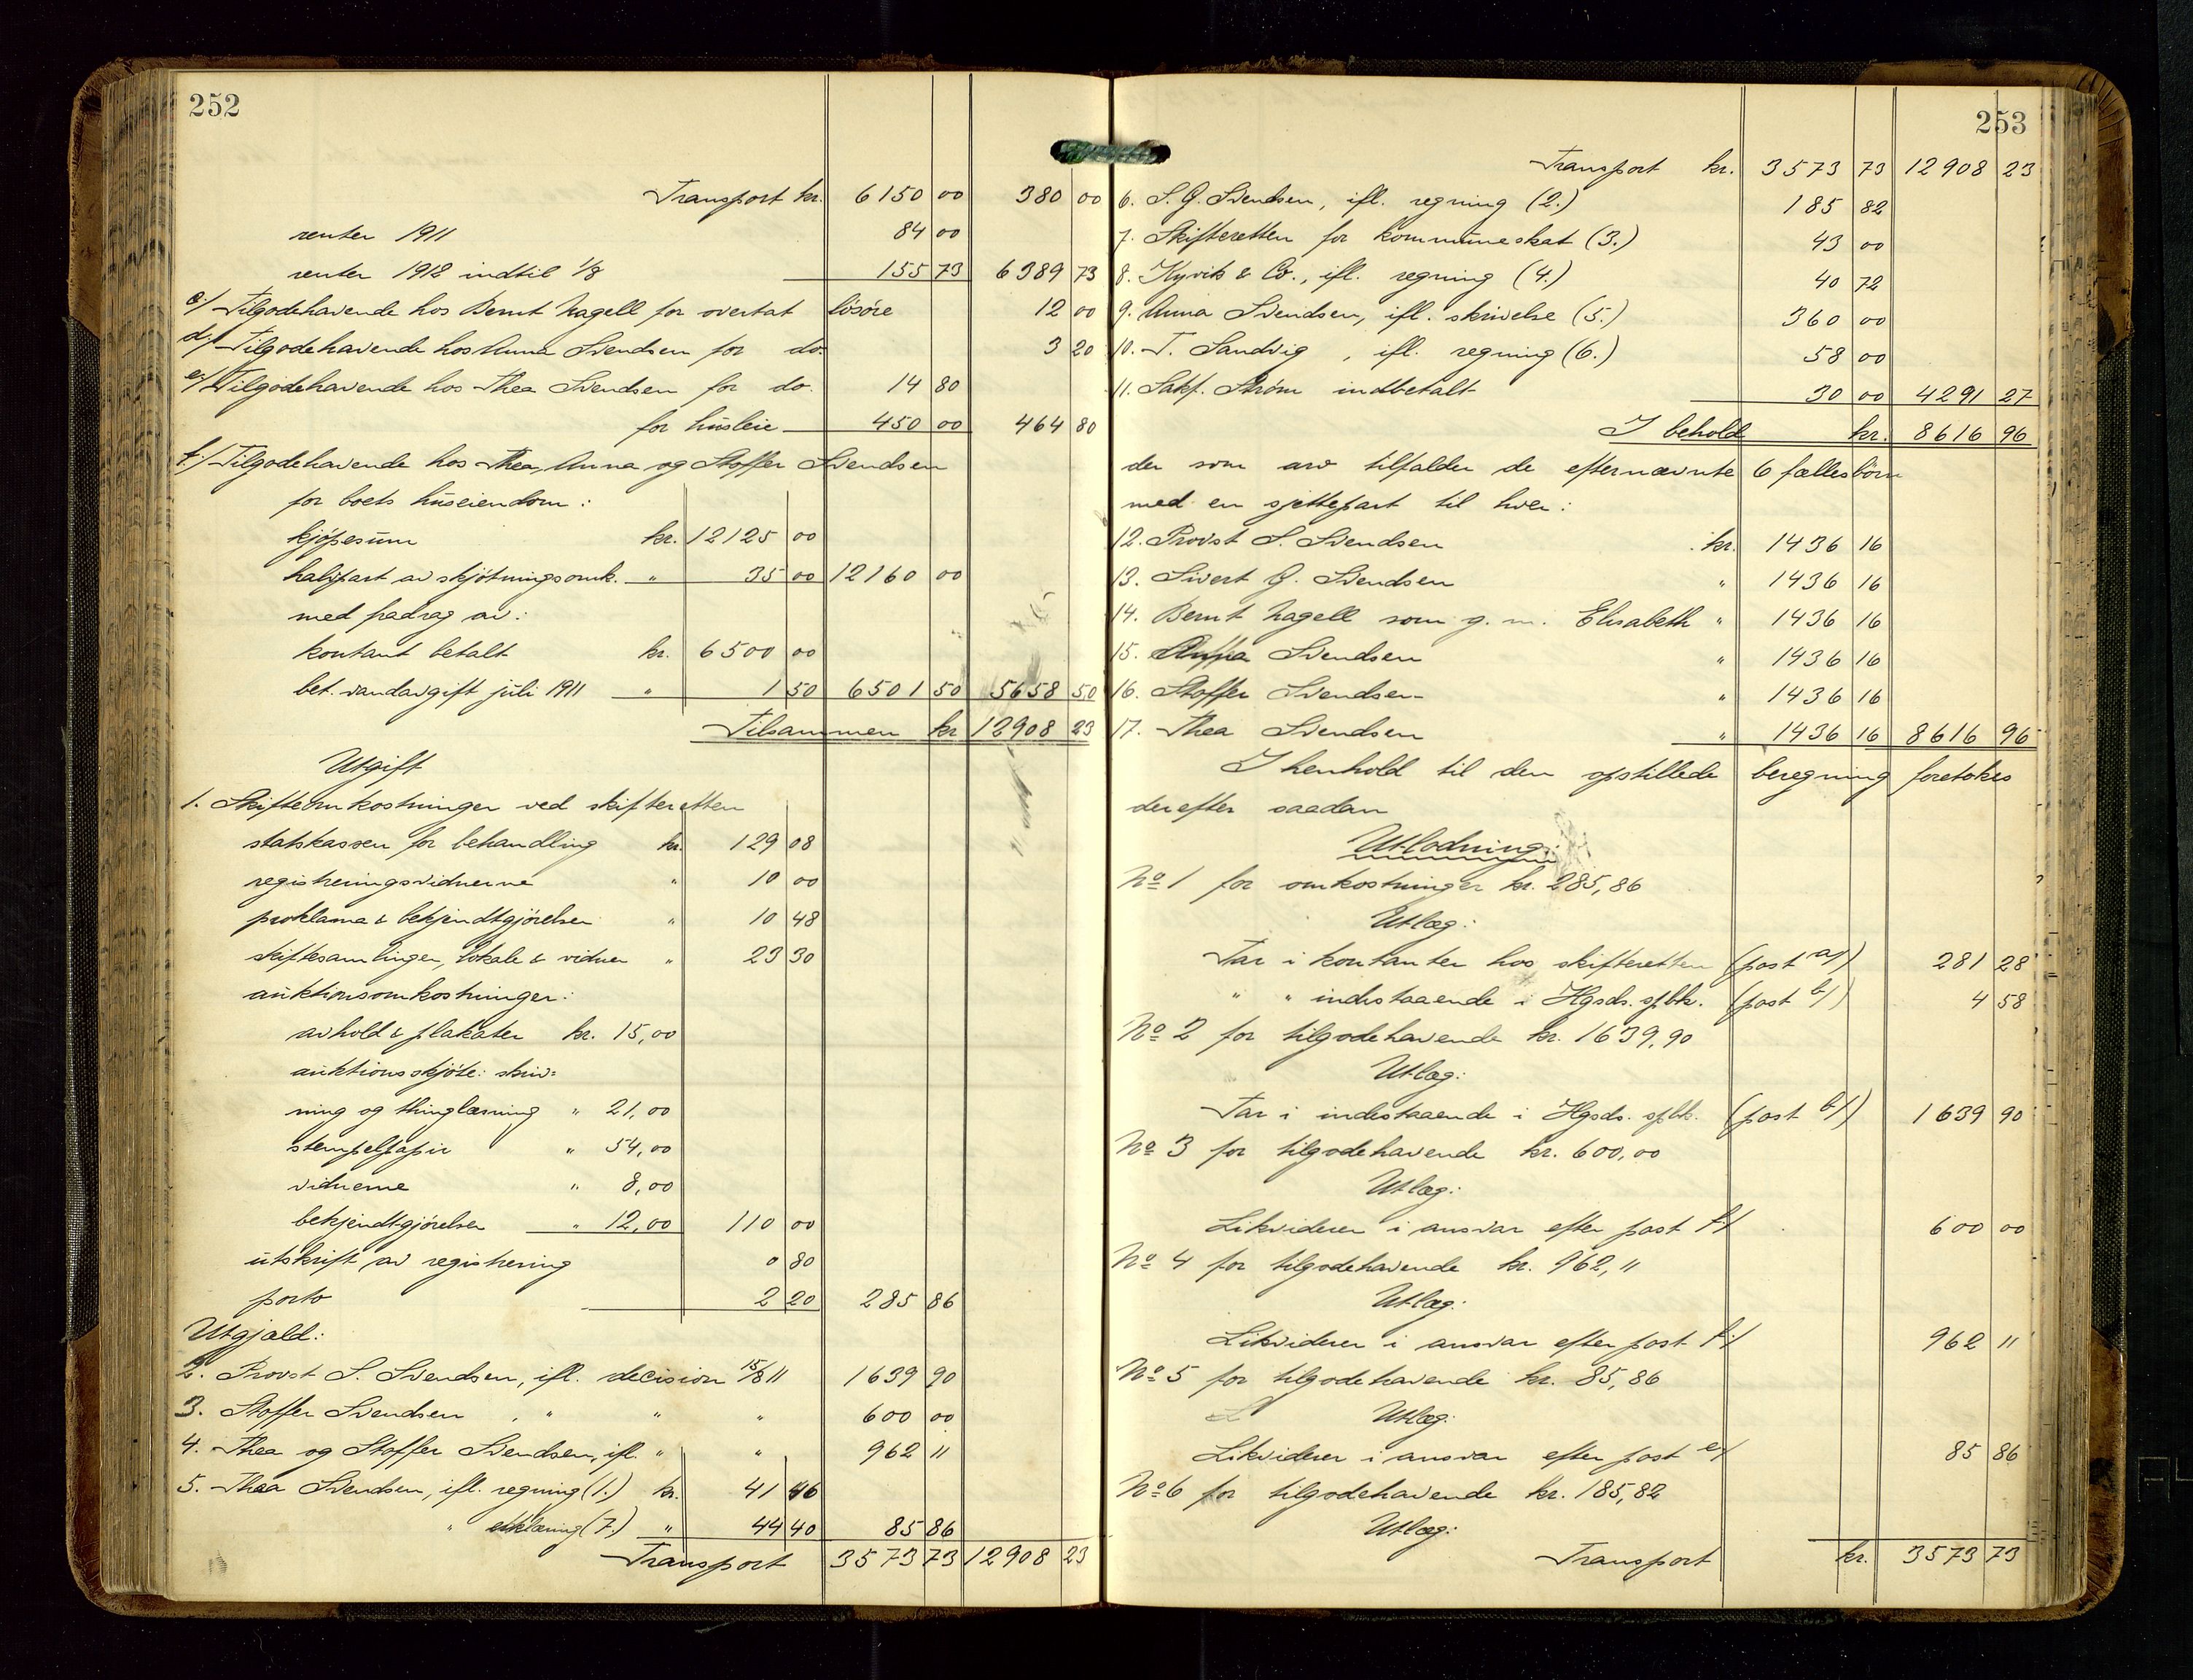 252
Transport kr. 6150 00 380 00
renter 1911 84 00
renter 1912 indtil 1/8 155 73 6389 73
c/ Tilgodehavende hos Bernt Nagell for overtat løsøre 12 00
d/ Tilgodehavende hos Anna Svendsen for do. 3 20
e/ Tilgodehavende hos Thea Svendsen for do. 14 80
for husleie 450 00 464 80
f./ Tilgodehavende hos Thea, Anna og Stoffer Svendsen
for boets huseiendom:
kjøpesum kr. 12125 00
halvpart av skjøtningsomk. " 35 00 12160 00
med fradrag av:
kontant betalt kr. 6500 00
bet. vandavgift juli 1911 " 1 50 6501 50 5658 50
Tilsammen kr 12908 23
Utgift
1. Skifteomkostninger ved skifteretten
statskassen for behandling kr. 129 08
registreringsvidnerne " 10 00
proklama & bekjendtgjørelser " 10 48
skiftesamlinger, lokale & vidner " 23 30
auktionsomkostninger:
avhold & plakater kr. 15,00
auktionsskjøte: skriv=
ning og thinglæsning " 21,00
stempelpapir " 54,00
vidnerne " 8,00
bekjendtgjørelser " 12,00 110 00
utskrift av registrering 0 80
porto 2 20 285 86
Utgjæld:
2. Provst S. Svendsen, ifl. decision 15/8 11 1639 90
3. Stoffer Svendsen, " " " 600 00
4. Thea og Stoffer Svendsen, ifl. " " 962 11
5. Thea Svendsen, ifl. regning (1.) kr. 41 46
" erklæring (7.) " 44 40 85 86
Transport 3573 73 12908 23
253
Transport kr. 3573 73 12908 23
6. S. G. Svendsen, ifl. regning (2.) 185 82
7. Skifteretten for kommuneskat (3.) 43 00
8. Kyvik & Co., ifl. regning (4.) 40 72
9. Anna Svendsen, ifl. skrivelse (5.) 360 00
10. T. Sandvig, ifl. regning (6.) 58 00
11. Sakf. Strøm indbetalt 30 00 4291 27
I behold kr. 8616 96
der som arv tilfalder de efternævnte 6 fællesbörn
med en sjettepart til hver:
12. Provst S. Svendsen kr. 1436 16
13. Sivert G. Svendsen " 1436 16
14. Bernt Nagell som g. m. Elisabeth " 1436 16
15. Anna Svendsen " 1436 16
16. Stoffer Svendsen " 1436 16
17. Thea Svendsen " 1436 16 8616 96
I henhold til den opstillede beregning foretokes
derefter saadan
Utlodning:
No 1 for omkostninger kr. 285,86
Utlæg:
Tar i kontanter hos skifteretten (post a/) 281 28
" " indestaaende i Hgsds. spbk. (post b/) 4 58
No 2 for tilgodehavende kr. 1639,90
Utlæg:
Tar i indestaaende i Hgsds. spbk. (post b/) 1639 90
No 3 for tilgodehavende kr. 600,00
Utlæg:
Likviderer i ansvar efter post f/ 600 00
No 4 for tilgodehavende kr. 962,11
Utlæg:
Likviderer i ansvar efter post f/ 962 11
No 5 for tilgodehavende kr. 85,86
Utlæg:
Likviderer i ansvar efter post e/ 85 86
No 6 for tilgodehavende kr. 185,82
Utlæg:
Transport kr. 3573 73